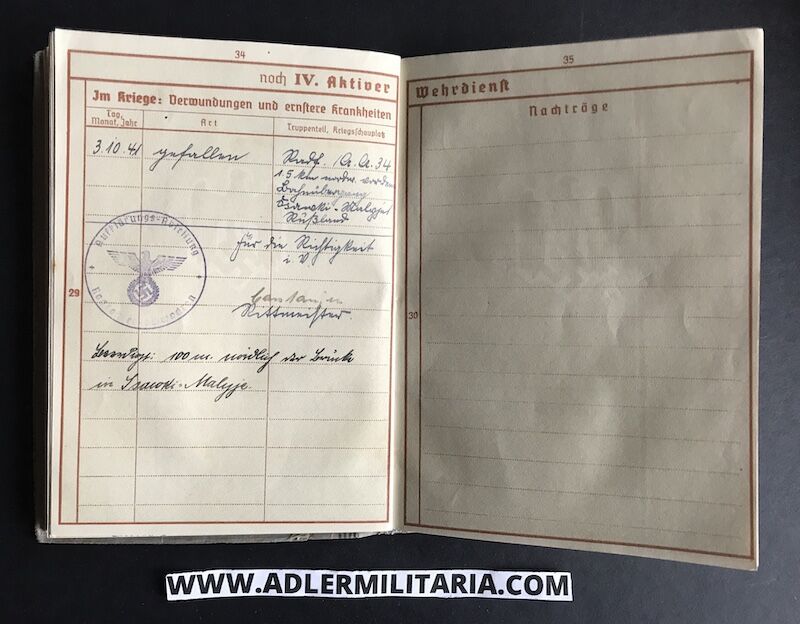 34
noch IV. Aktiver
Im Kriege: Verwundungen und ernstere Krankheiten
Tag, Monat, Jahr
Art
Truppenteil, Kriegsschauplatz
3.10.41
gefallen
Radf. /A.A. 34
1.5 km nordw. vor dem
Bahnübergang
Rußland
Für die Richtigkeit
i. V.
Rittmeister.
Aufklärungs-Abteilung
29
Beerdigt: 100 m. nördlich der Brücke
in Isawki-Malyje.
35
Wehrdienst
Nachträge
30
WWW.ADLERMILITARIA.COM